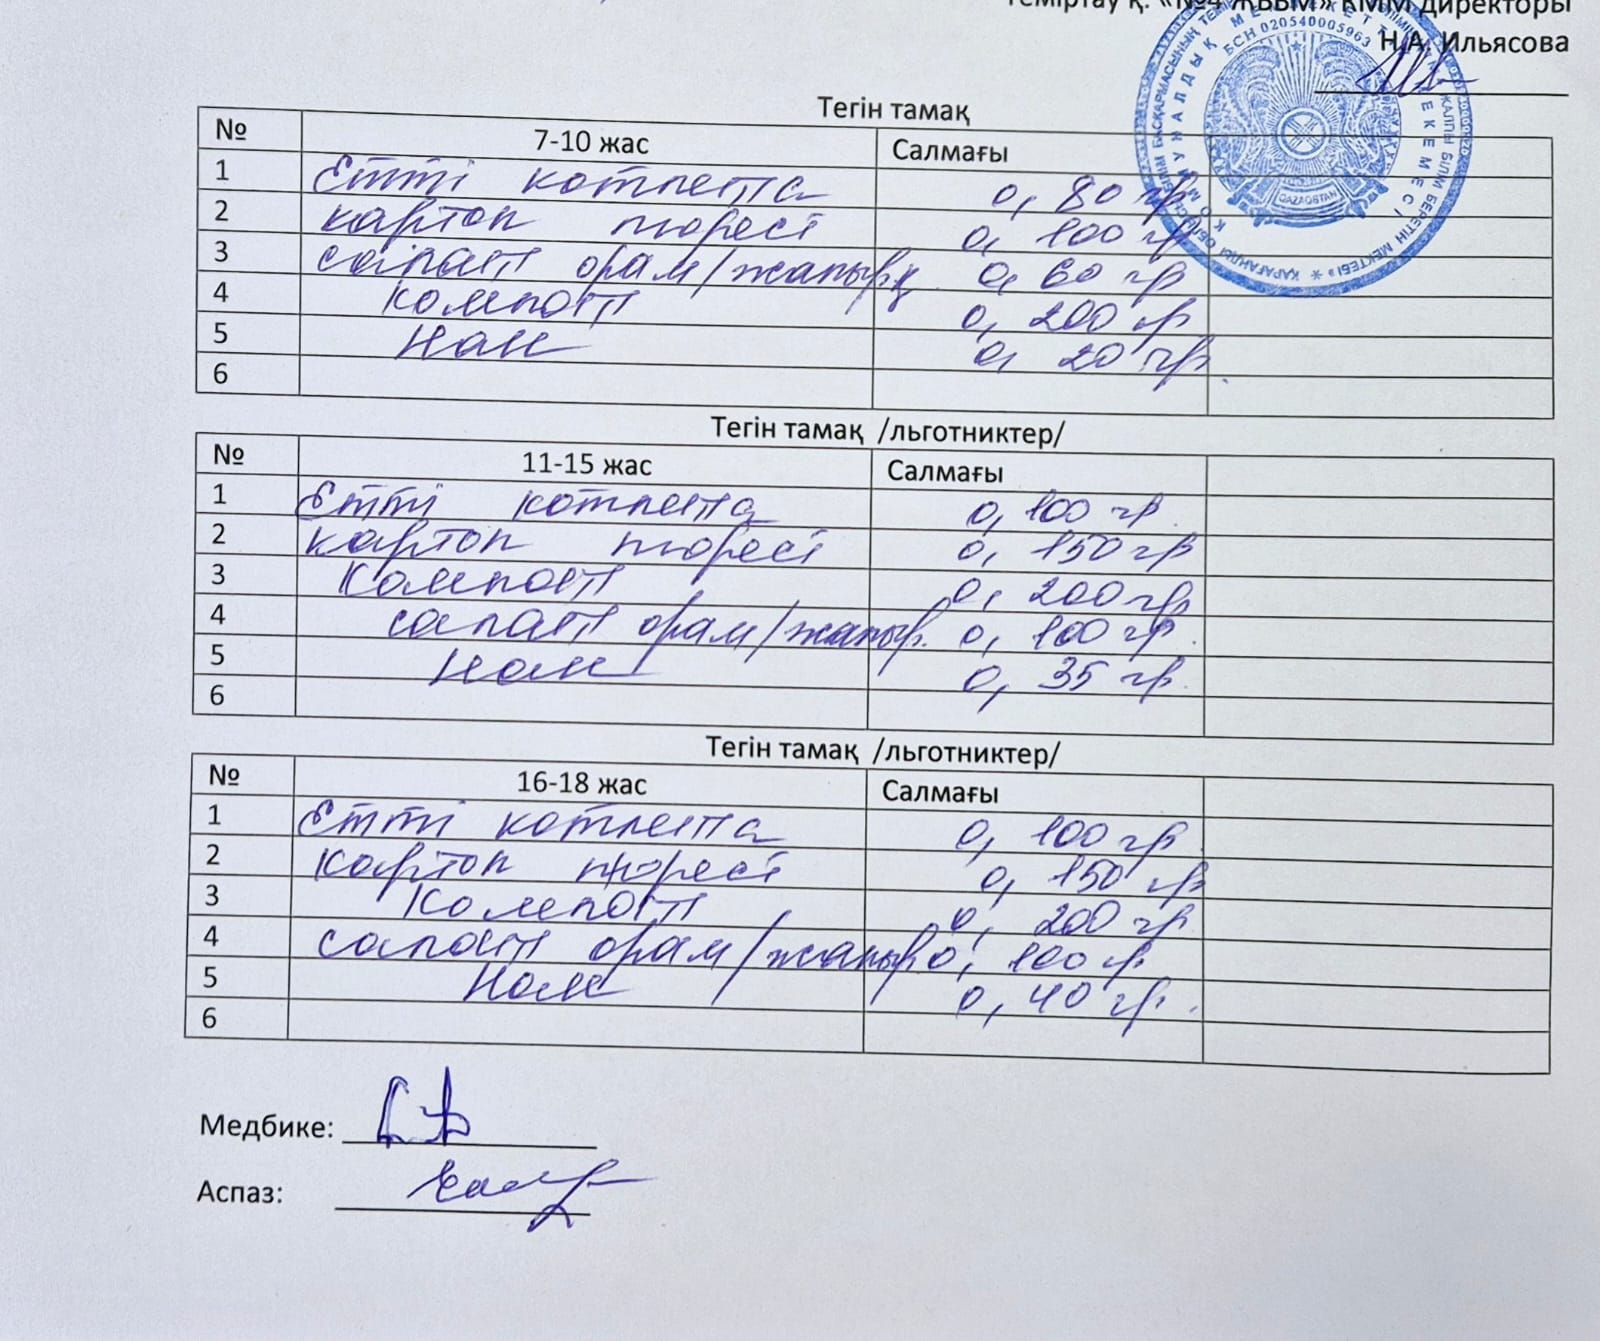 Теміртау қ. «№4 ЖББМ» КММ директоры
Н.А. Ильясова
БСН 020540005963
QAZAQSTAN
Тегін тамақ
№ 7-10 жас Салмағы
1 Етті котлета 0, 80 гр
2 картоп пюресі 0, 100 гр
3 салат орам/жапырқ 0, 60 гр
4 Компот 0, 200 гр
5 Нан 0, 20 гр.
6
Тегін тамақ /льготниктер/
№ 11-15 жас Салмағы
1 Етті котлета 0, 100 гр.
2 картоп пюресі 0, 150 гр
3 Компот 0, 200 гр
4 салат орам/жапыр. 0, 100 гр.
5 Нан 0, 35 гр.
6
Тегін тамақ /льготниктер/
№ 16-18 жас Салмағы
1 Етті котлета 0, 100 гр.
2 картоп пюресі 0, 150 гр
3 Компот 0, 200 гр.
4 салат орам/жапыр 0, 100 гр
5 Нан 0, 40 гр.
6
Медбике:
Аспаз: